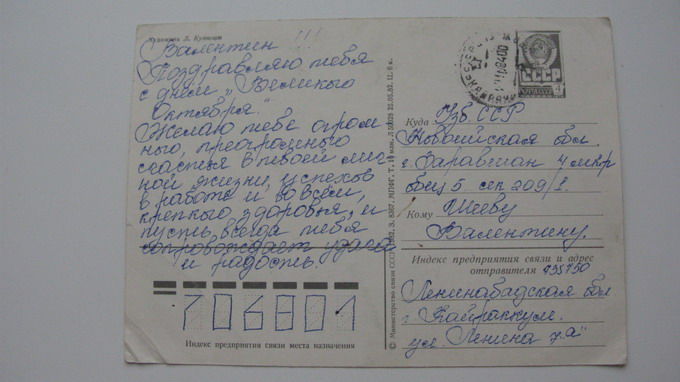 Художник Л. Кузнецов
Валентин!!!
Поздравляю тебя
с днём „Великого
Октября".
Желаю тебе огром
ного, преогромного
счастья в твоей лич
ной жизни, успехов
в работе и во всём,
крепкого здоровья, и
пусть всегда тебя
сопровождает удача
и радость.
706801
Индекс предприятия связи места назначения
© Министерство связи СССР
СССР
Куда Узб ССР
Новоийская обл.
г. Заравшан 4 мкр
бец 5. сек 209/1.
Кому Шееву
Валентину.
Индекс предприятия связи и адрес
отправителя 735750
Ленинабадская обл
г Кайраккум.
ул. Ленина 7"а"